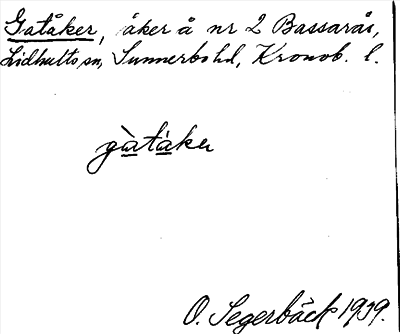 Gatåker, åker å nr 2 Bassarås,
Lidhults sn, Sunnerbo hd, Kronob. l.
gàtåker
O. Segerbäck 1939.